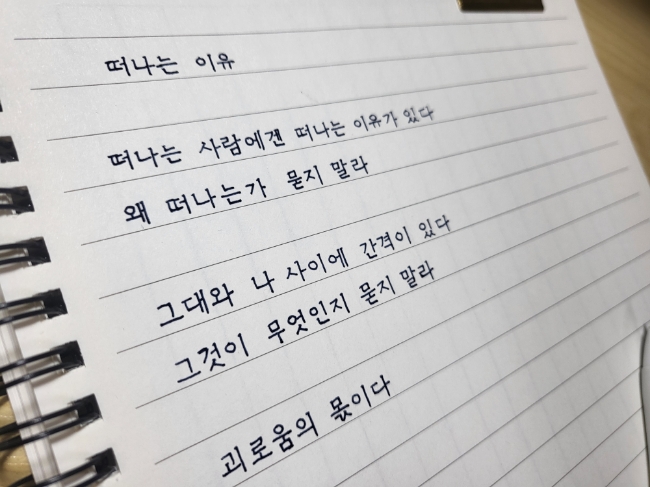 떠나는 이유
떠나는 사람에겐 떠나는 이유가 있다
왜 떠나는가 묻지 말라
그대와 나 사이에 간격이 있다
그것이 무엇인지 묻지 말라
괴로움의 몫이다